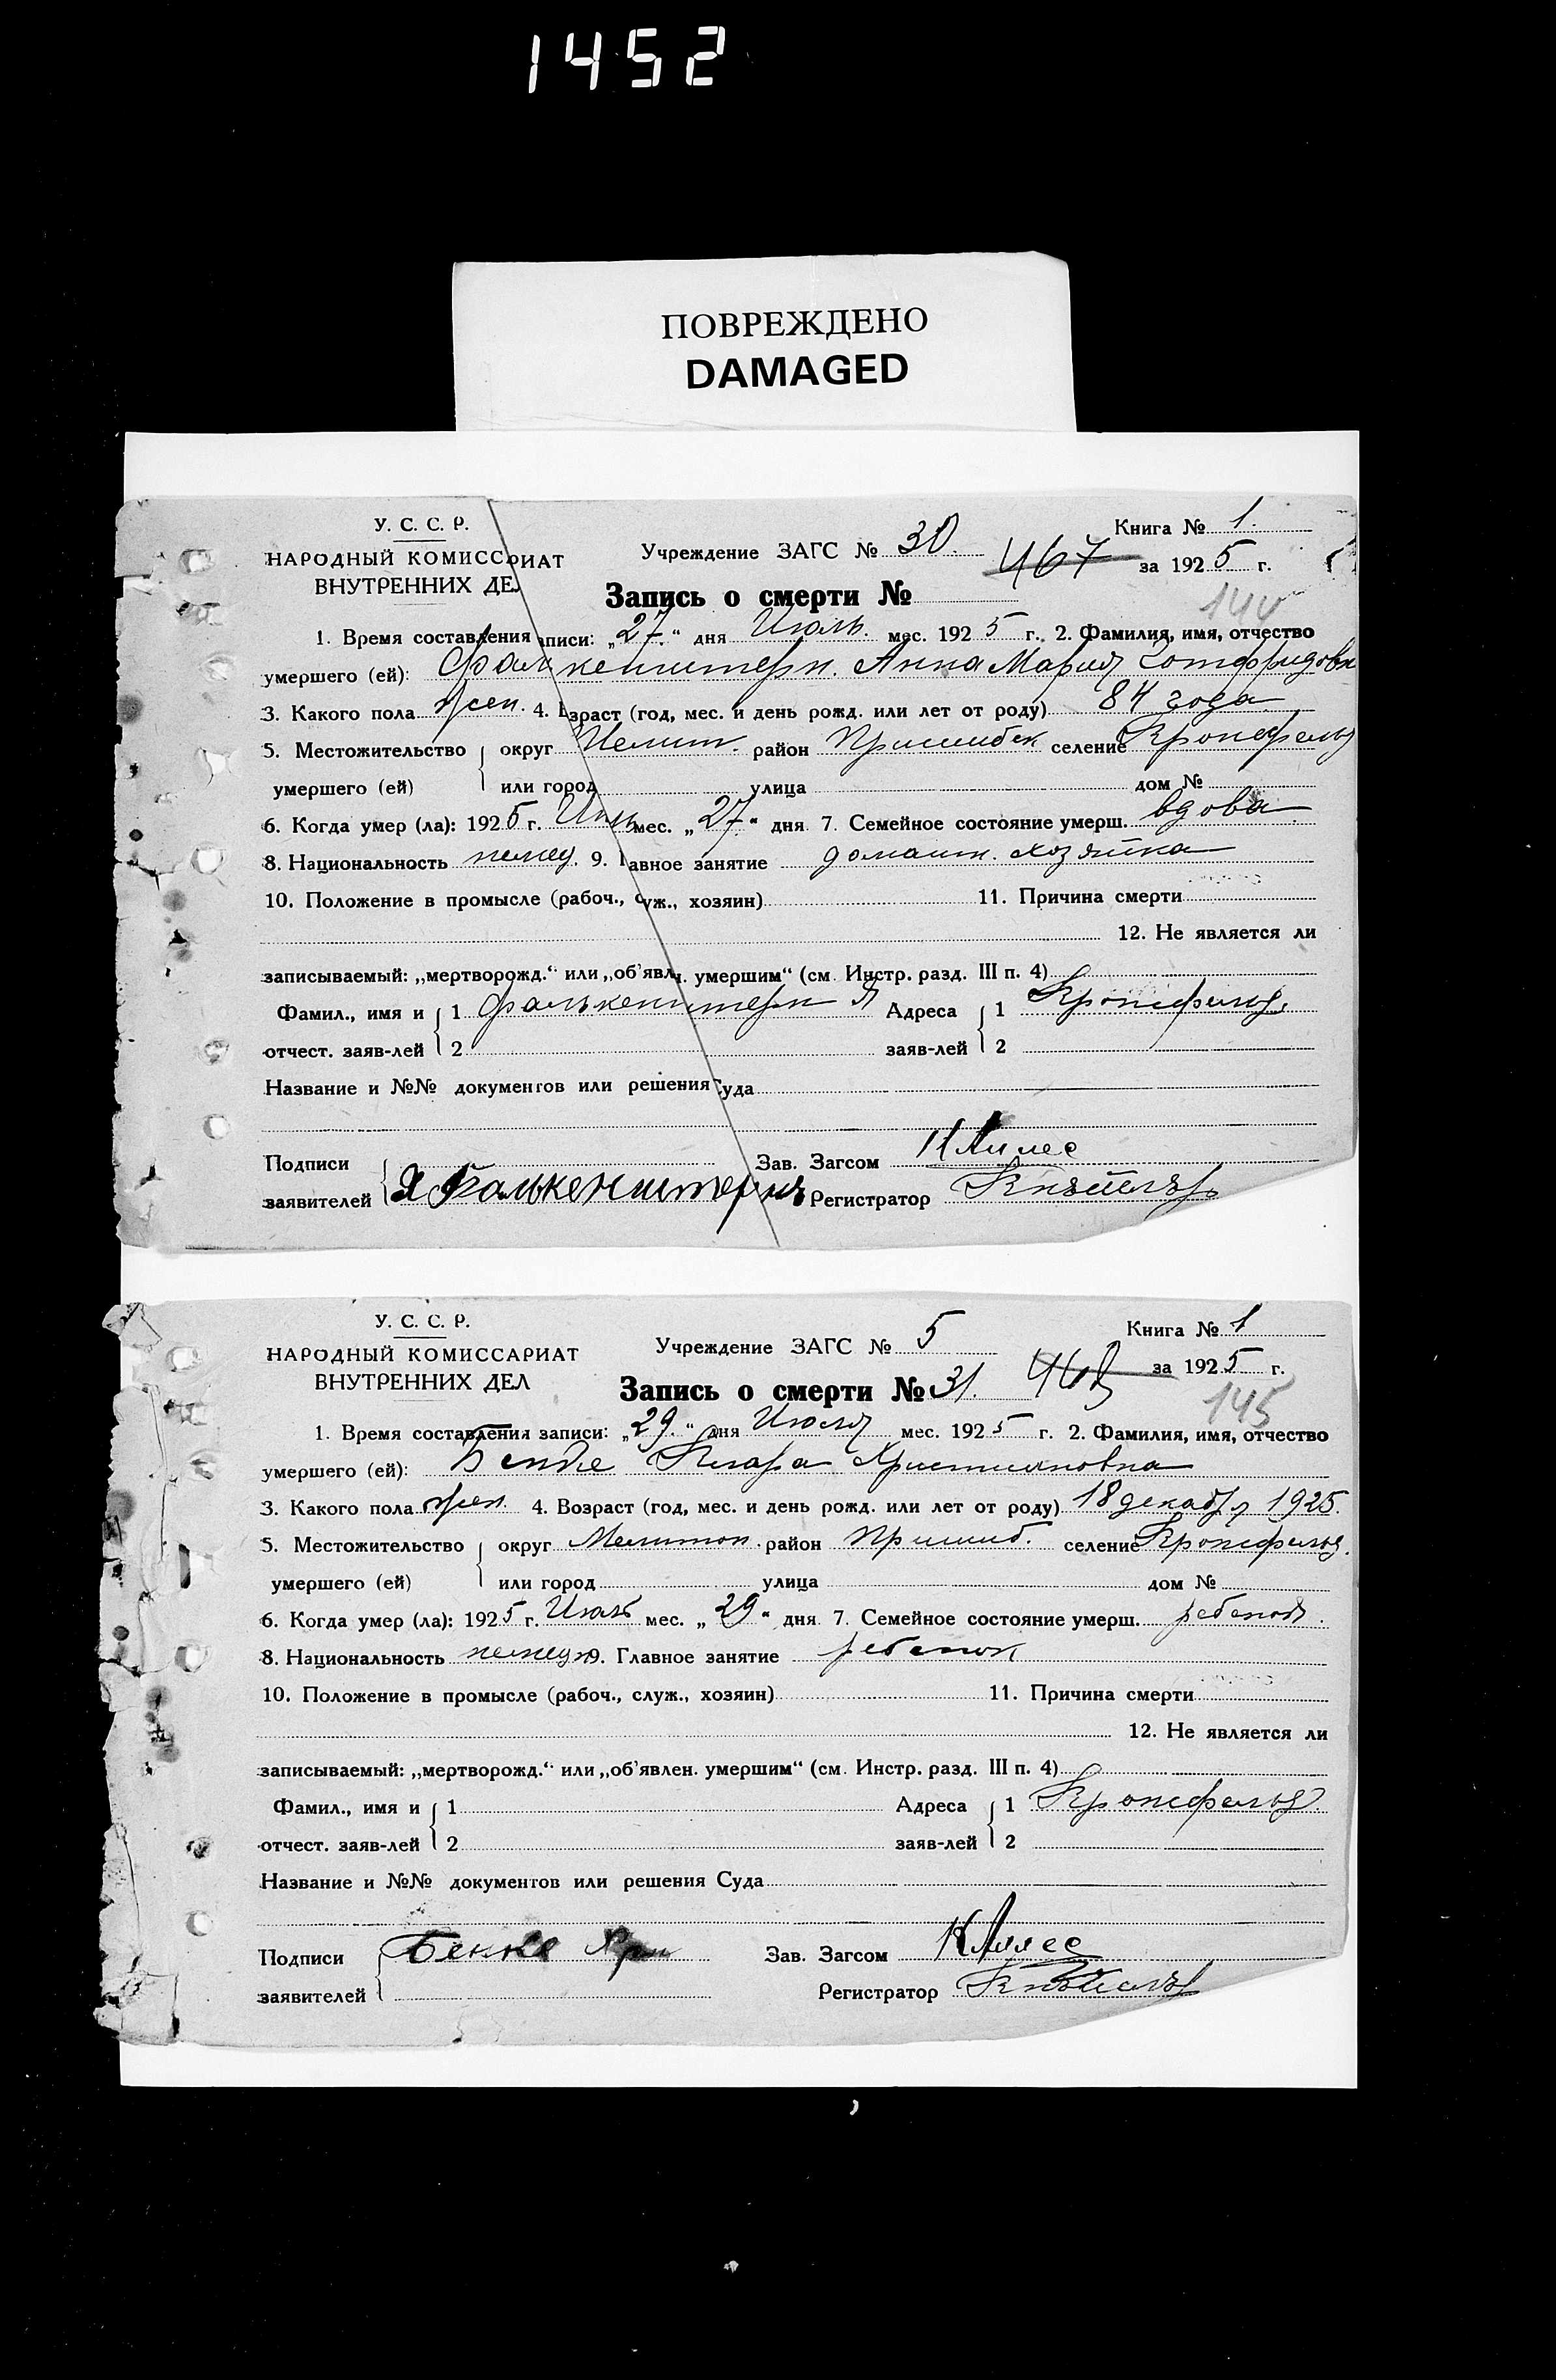 1452
ПОВРЕЖДЕНО
DAMAGED
У. С. С. Р.
НАРОДНЫЙ КОМИССАРИАТ
ВНУТРЕННИХ ДЕЛ
Книга № 1.
Учреждение ЗАГС № 30.
467 за 1925 г.
Запись о смерти №
144
1. Время составления записи: „27.“ дня Июль. мес. 1925 г. 2. Фамилия, имя, отчество
умершего (ей): Фалькенштерн. Анна Мария Готфридовн
3. Какого пола жен. 4. Возраст (год, мес. и день рожд. или лет от роду) 84 года
5. Местожительство округ Мелит. район Пришибск селение Кронсфельд
умершего (ей) или город улица дом №
6. Когда умер (ла): 1925 г. Июль мес. „27.“ дня 7. Семейное состояние умерш. вдова
8. Национальность немец. 9. Главное занятие домашн. хозяйка
10. Положение в промысле (рабоч., служ., хозяин) 11. Причина смерти
12. Не является ли
записываемый: „мертворожд.“ или „об’явл. умершим“ (см. Инстр. разд. III п. 4)
Фамил., имя и 1 Фалькенштерн Я Адреса 1 Кронсфельд.
отчест. заяв-лей 2 заяв-лей 2
Название и №№ документов или решения Суда
Подписи Зав. Загсом
заявителей Я Фалькенштернъ Регистратор
У. С. С. Р.
НАРОДНЫЙ КОМИССАРИАТ
ВНУТРЕННИХ ДЕЛ
Книга № 1
Учреждение ЗАГС № 5
468 за 1925 г.
Запись о смерти № 31.
145
1. Время составления записи: „29.“ дня Июля мес. 1925 г. 2. Фамилия, имя, отчество
умершего (ей): Бенке Клара Християновна
3. Какого пола жен. 4. Возраст (год, мес. и день рожд. или лет от роду) 18 декабря 1925.
5. Местожительство округ Мелитоп. район Пришиб. селение Кронсфельд.
умершего (ей) или город улица дом №
6. Когда умер (ла): 1925 г. Июль мес. „29“ дня 7. Семейное состояние умерш. ребенок.
8. Национальность немец 9. Главное занятие ребенок
10. Положение в промысле (рабоч., служ., хозяин) 11. Причина смерти
12. Не является ли
записываемый: „мертворожд.“ или „об’явлен. умершим“ (см. Инстр. разд. III п. 4)
Фамил., имя и 1 Адреса 1 Кронсфельд.
отчест. заяв-лей 2 заяв-лей 2
Название и №№ документов или решения Суда
Подписи Бенке Хри Зав. Загсом
заявителей Регистратор